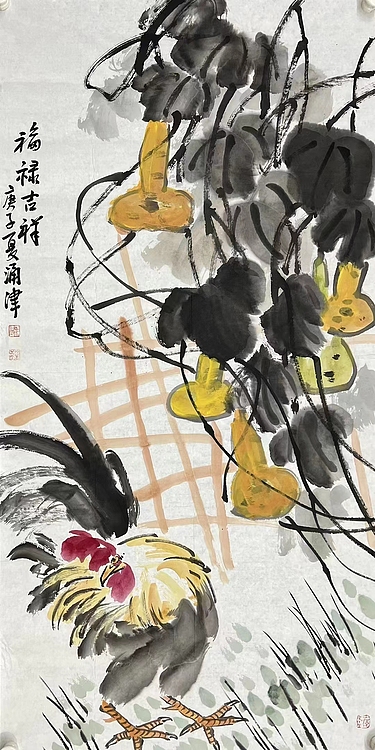 福禄吉祥
庚子夏涌津